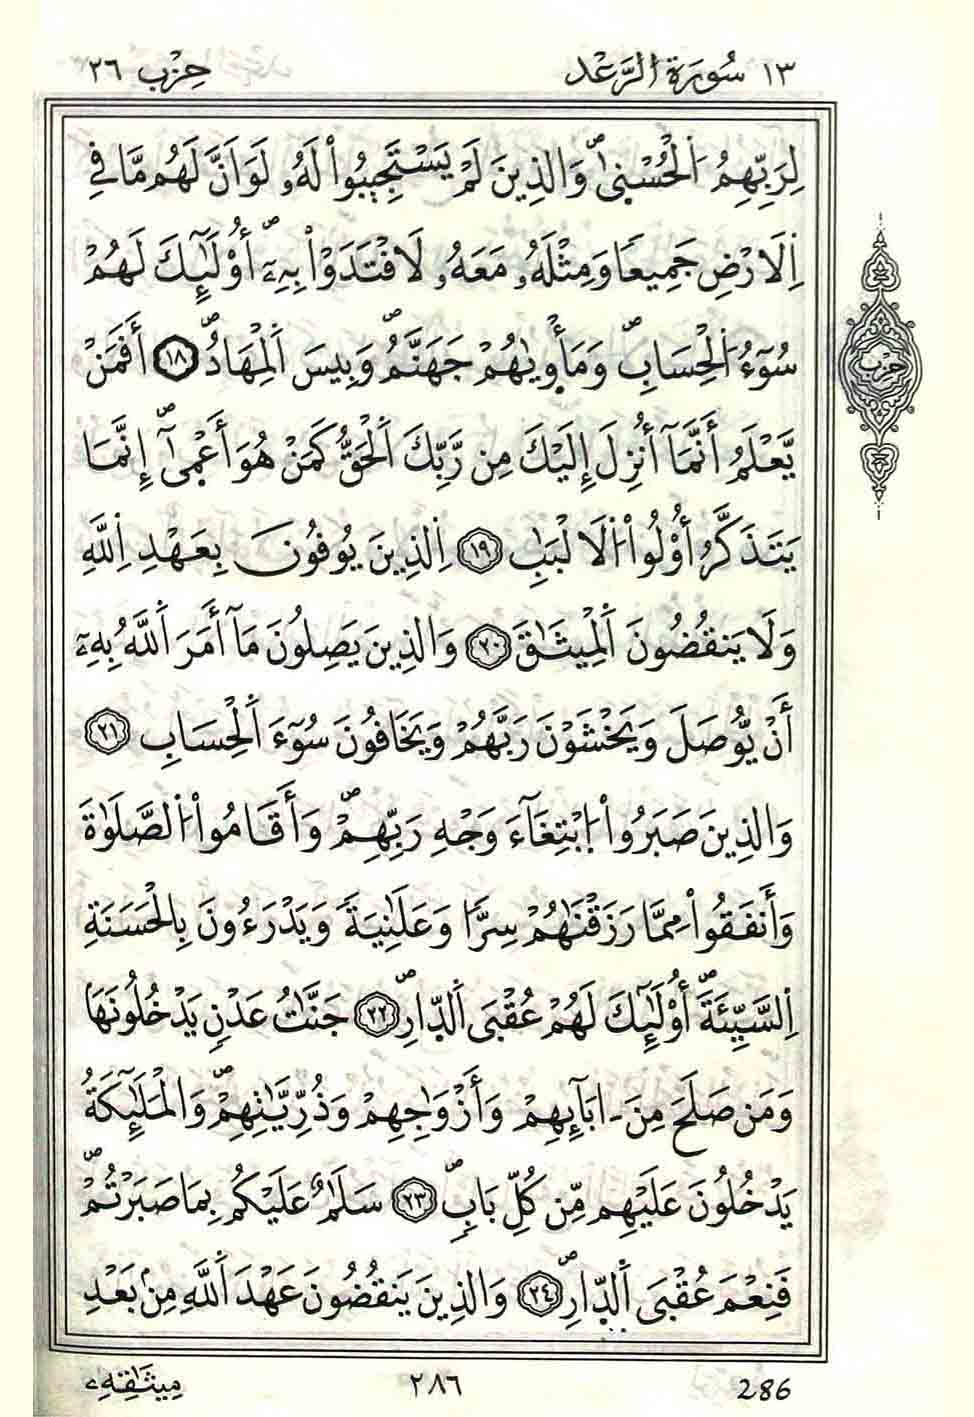 ١٣ سُورَةُ الرَّعْد حِزْب ٢٦
لِرَبِّهِمُ اُ۬لْحُسْن۪يٰۖ وَالذِينَ لَمْ يَسْتَجِيبُواْ لَهُۥ لَوَ اَنَّ لَهُم مَّا فِے
اِ۬لَارْضِ جَمِيعاٗ وَمِثْلَهُۥ مَعَهُۥ لَافْتَدَوْاْ بِهِۦٓۖ أُوْلَٰٓئِكَ لَهُمْ
سُوٓءُ اُ۬لْحِسَابِۖ وَمَأْو۪يٰهُمْ جَهَنَّمُۖ وَبِيسَ اَ۬لْمِهَادُۖ ١٨ أَفَمَنْ
يَّعْلَمُ أَنَّمَآ أُنزِلَ إِلَيْكَ مِن رَّبِّكَ اَ۬لْحَقُّ كَمَنْ هُوَ أَعْم۪يٰٓۖ إِنَّمَا
يَتَذَكَّرُ أُوْلُواْ اُ۬لَالْبَٰبِ ١٩ اِ۬لذِينَ يُوفُونَ بِعَهْدِ اِ۬للَّهِ
وَلَا يَنقُضُونَ اَ۬لْمِيثَٰقَ ٢٠ وَالذِينَ يَصِلُونَ مَآ أَمَرَ اَ۬للَّهُ بِهِۦٓ
أَنْ يُّوصَلَ وَيَخْشَوْنَ رَبَّهُمْ وَيَخَافُونَ سُوٓءَ اَ۬لْحِسَابِ ٢١
وَالذِينَ صَبَرُواْ اُ۪بْتِغَآءَ وَجْهِ رَبِّهِمْۖ وَأَقَامُواْ اُ۬لصَّلَوٰةَ
وَأَنفَقُواْ مِمَّا رَزَقْنَٰهُمْ سِرّاٗ وَعَلَٰنِيَةٗ وَيَدْرَءُونَ بِالْحَسَنَةِ
اِ۬لسَّيِّئَةَۖ أُوْلَٰٓئِكَ لَهُمْ عُقْبَي اَ۬لدّ۪ارِۖ ٢٢ جَنَّٰتُ عَدْنٖ يَدْخُلُونَهَا
وَمَن صَلَحَ مِنَ ـ اٰبَآئِهِمْ وَأَزْوَٰجِهِمْ وَذُرِّيَّٰتِهِمْۖ وَالْمَلَٰٓئِكَةُ
يَدْخُلُونَ عَلَيْهِم مِّن كُلِّ بَابٖۖ ٢٣ سَلَٰمٌ عَلَيْكُم بِمَا صَبَرْتُمْۖ
فَنِعْمَ عُقْبَي اَ۬لدّ۪ارِۖ ٢٤ وَالذِينَ يَنقُضُونَ عَهْدَ اَ۬للَّهِ مِنۢ بَعْدِ
مِيثَٰقِهِۦ ٢٨٦ 286
حِزْب